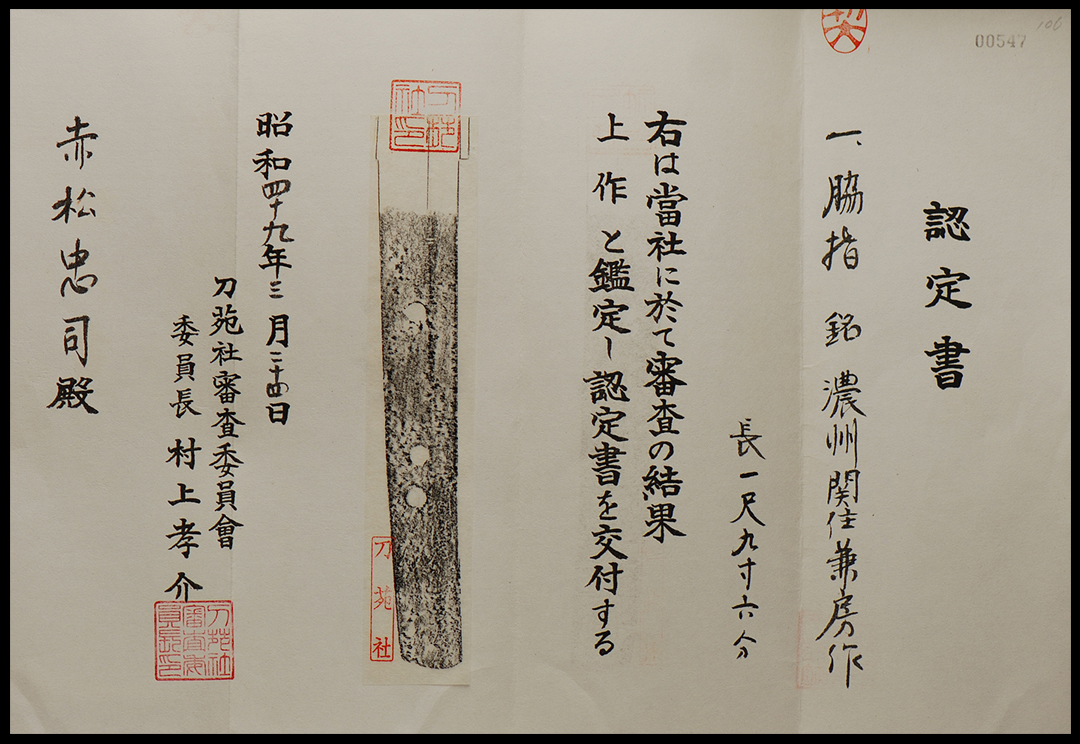 00547
106
認定書
一、脇指 銘 濃州関住兼房作
長一尺九寸六分
右は當社に於て審査の結果
上作と鑑定し認定書を交付する
刀苑社印
刀苑社
昭和四十九年三月二十四日
刀苑社審査委員會
委員長 村上孝介
刀苑社審査委員長印
赤松忠司殿